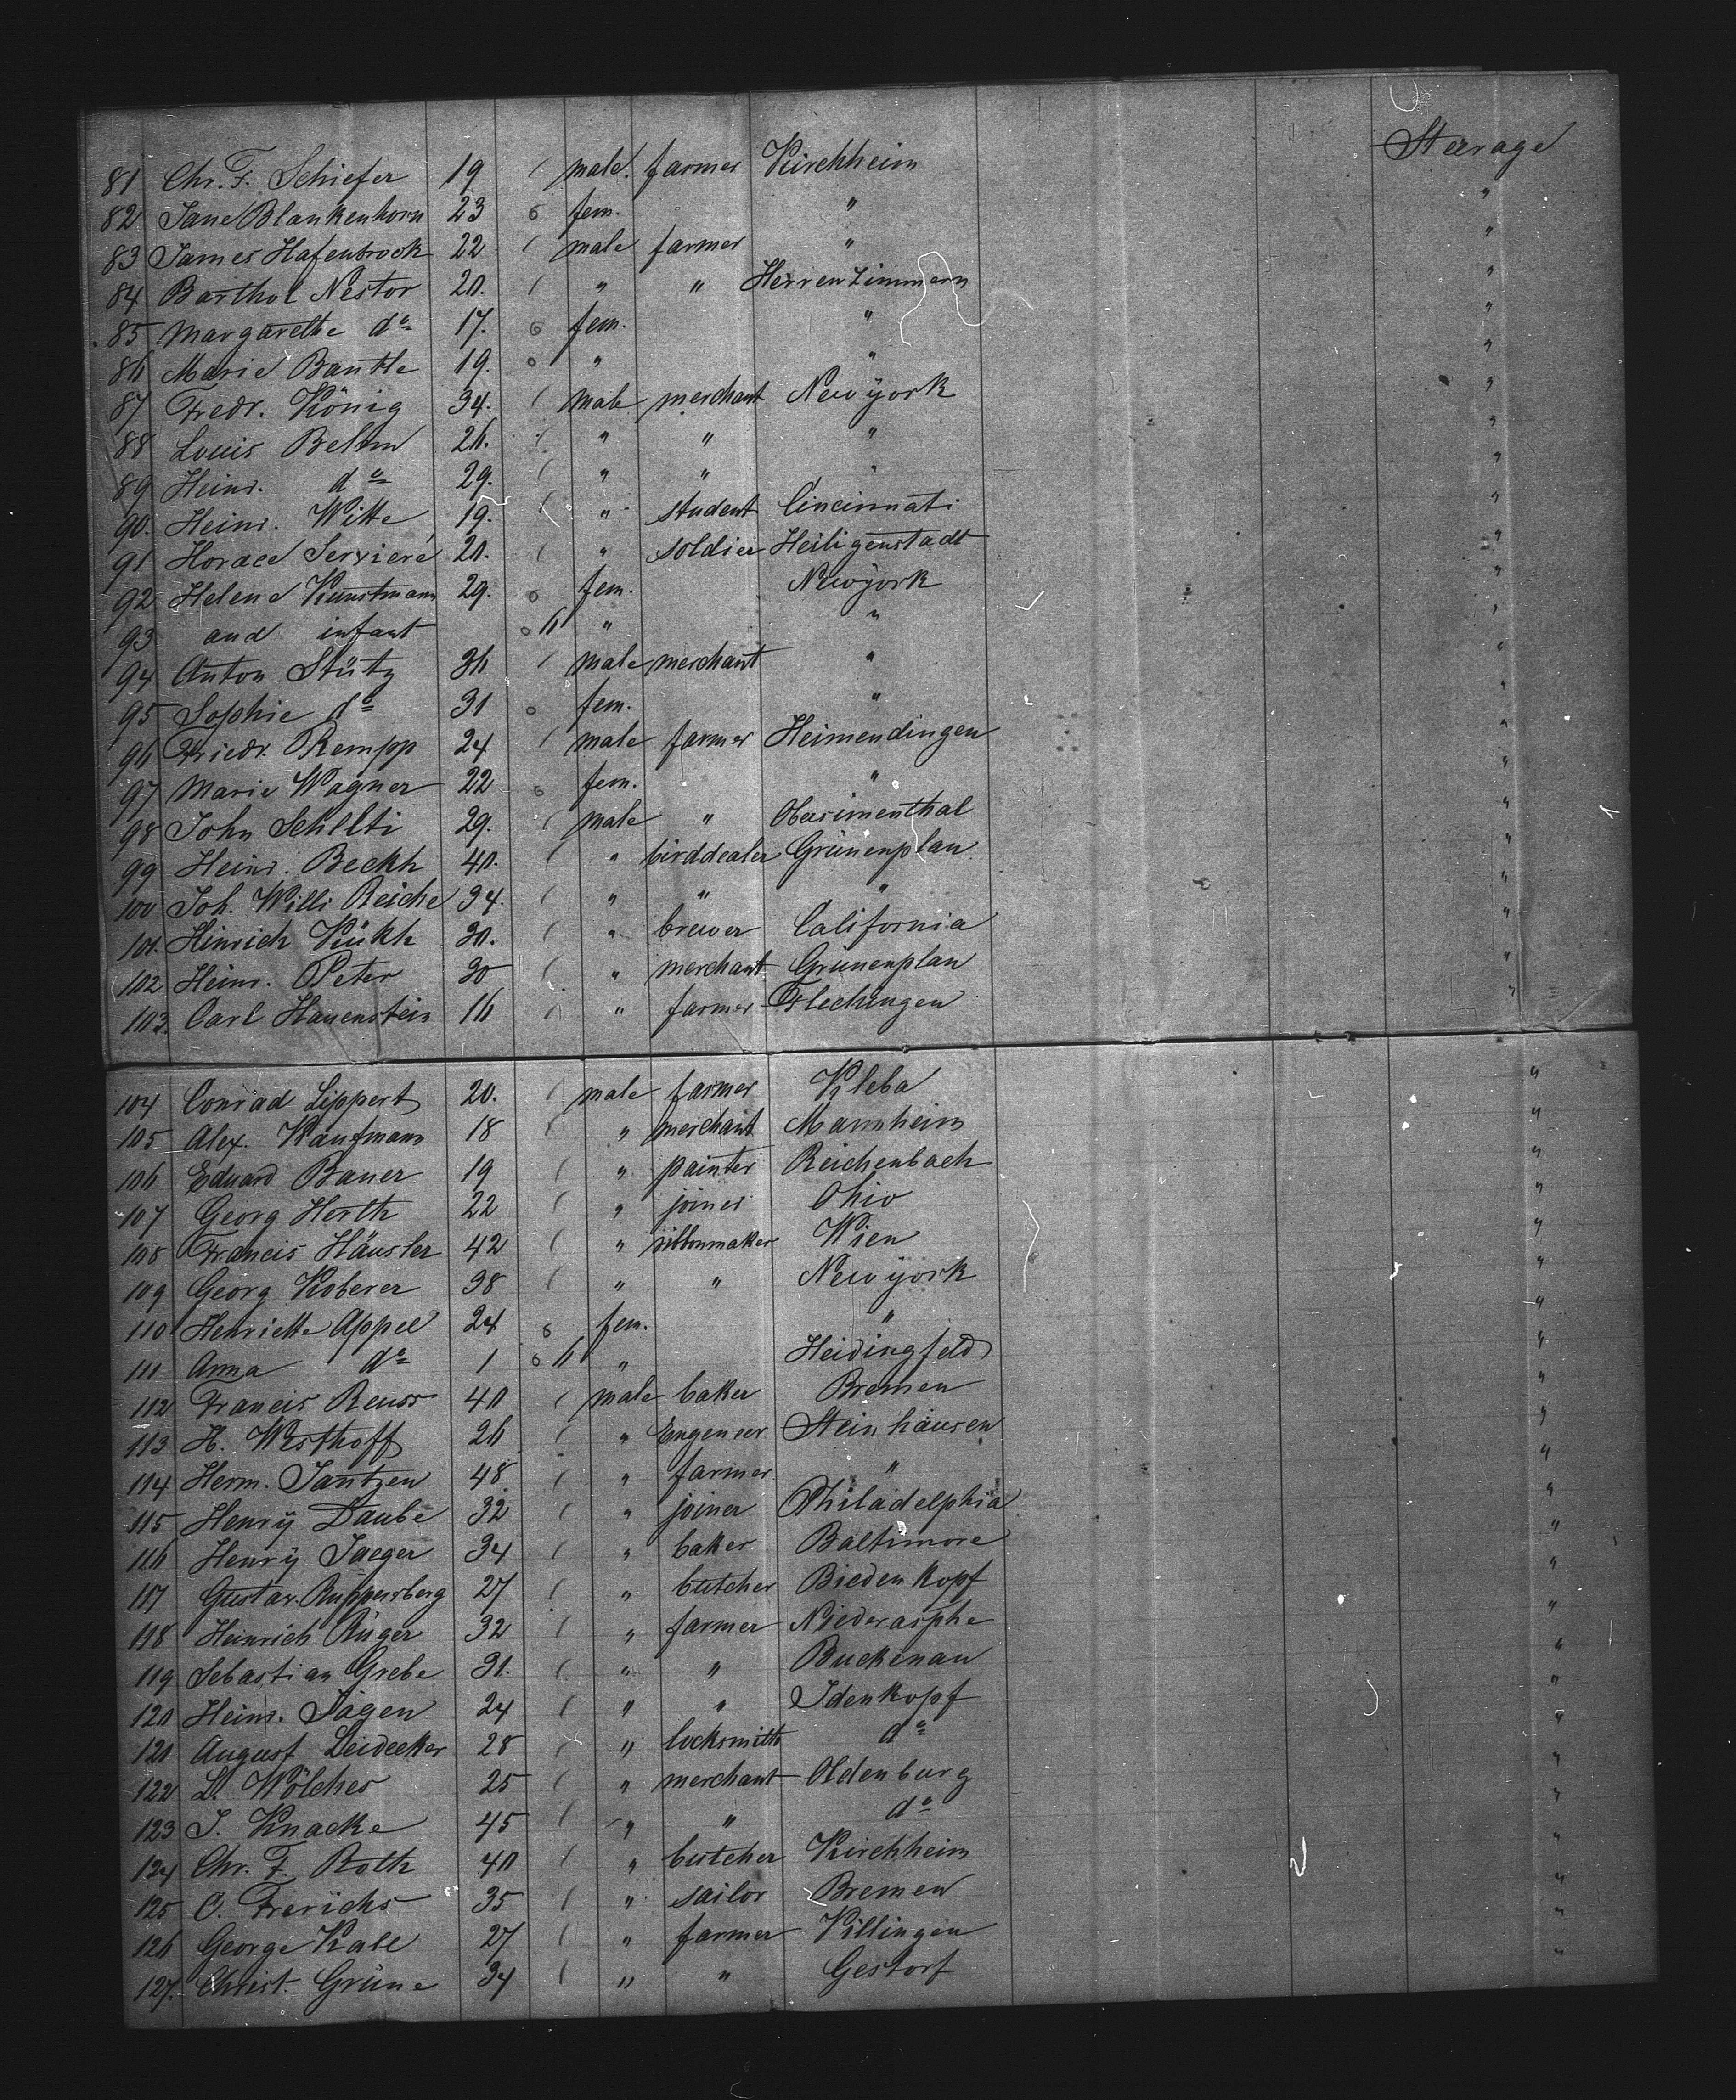 Steerage
81 Chr. F. Schiefer 19 male farmer Kirchheim
82 Jane Blankenhorn 23 fem. " "
83 James Hafenbrock 22 male farmer " "
84 Barthol Nestor 20. " " Herrenzimmern "
85 Margarethe do 17. fem. " "
86 Marie Bantle 19. " " "
87 Fredr. König 34. male merchant Newyork "
88 Louis Behm 26. " " " "
89 Heinr. do 29. " " " "
90. Heinr. Witte 19. " student Cincinnati "
91 Horace 20. " soldier Heiligenstadt "
92 Helene Kunstmann 29. fem. Newyork "
93 and infant " " "
94 Anton Stütz 36 male merchant " "
95 Sophie do 31 fem. " "
96 Friedr. Rempp 24 male farmer Heimendingen "
97 Marie Wagner 22 fem. " "
98 John Schllti 29. male " Obersimenthal "
99 Heinr. Beckh 40. " birddealer Grünenplan "
100 Joh. Willi Reiche 34. " " " "
101. Hinrich Kükh 30. " brewer California "
102 Heinr. Peter 30 " merchant Grünenplan "
103. Carl Hauenstein 16 " farmer Flechingen "
104 Conrad Lippert 20. male farmer Kleba "
105 Alex. Kaufmann 18 " merchant Mannheim "
106 Eduard Bauer 19 " painter Reichenbach "
107 Georg Horth 22 " joiner Ohio "
108 Francis Häusler 42 " ribbonmaker Wien "
109 Georg Koberer 38 " " Newyork "
110 Henriette Appel 24 fem. " "
111 Anna do 1 " Heidingfeld "
112 Francis Reuss 40 male baker Bremen "
113 H. Westhoff 26 " Engeneer Steinhausen "
114 Herm. Jantzen 48 " farmer " "
115 Henry Daube 32 " joiner Philadelphia "
116 Henry Jaeger 34 " baker Baltimore "
117 Gustav. Ruppersberg 27 " butcher Biedenkopf "
118 Heinrich Rüger 32 " farmer Niederasphe "
119 Sebastian Grebe 31. " " Buckenau "
120 Heinr. Jägen 24 " " Idenkopf "
121 August Leidecker 28 " locksmith do "
122 L. Wölcher 25 " merchant Oldenburg "
123 J. Knacke 45 " " do "
124 Chr. F. Roth 40 " butcher Kirchheim "
125 C. Frerichs 35 " sailor Bremen "
126 George Kall 27 " farmer Villingen "
127. Christ. Grüne 34 " " Gestorf "